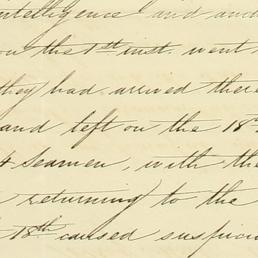 intelligence and
on the 1st inst. went
they had arrived there
and left on the 18
4 Seamen, with the
returning to the
18th caused suspicio